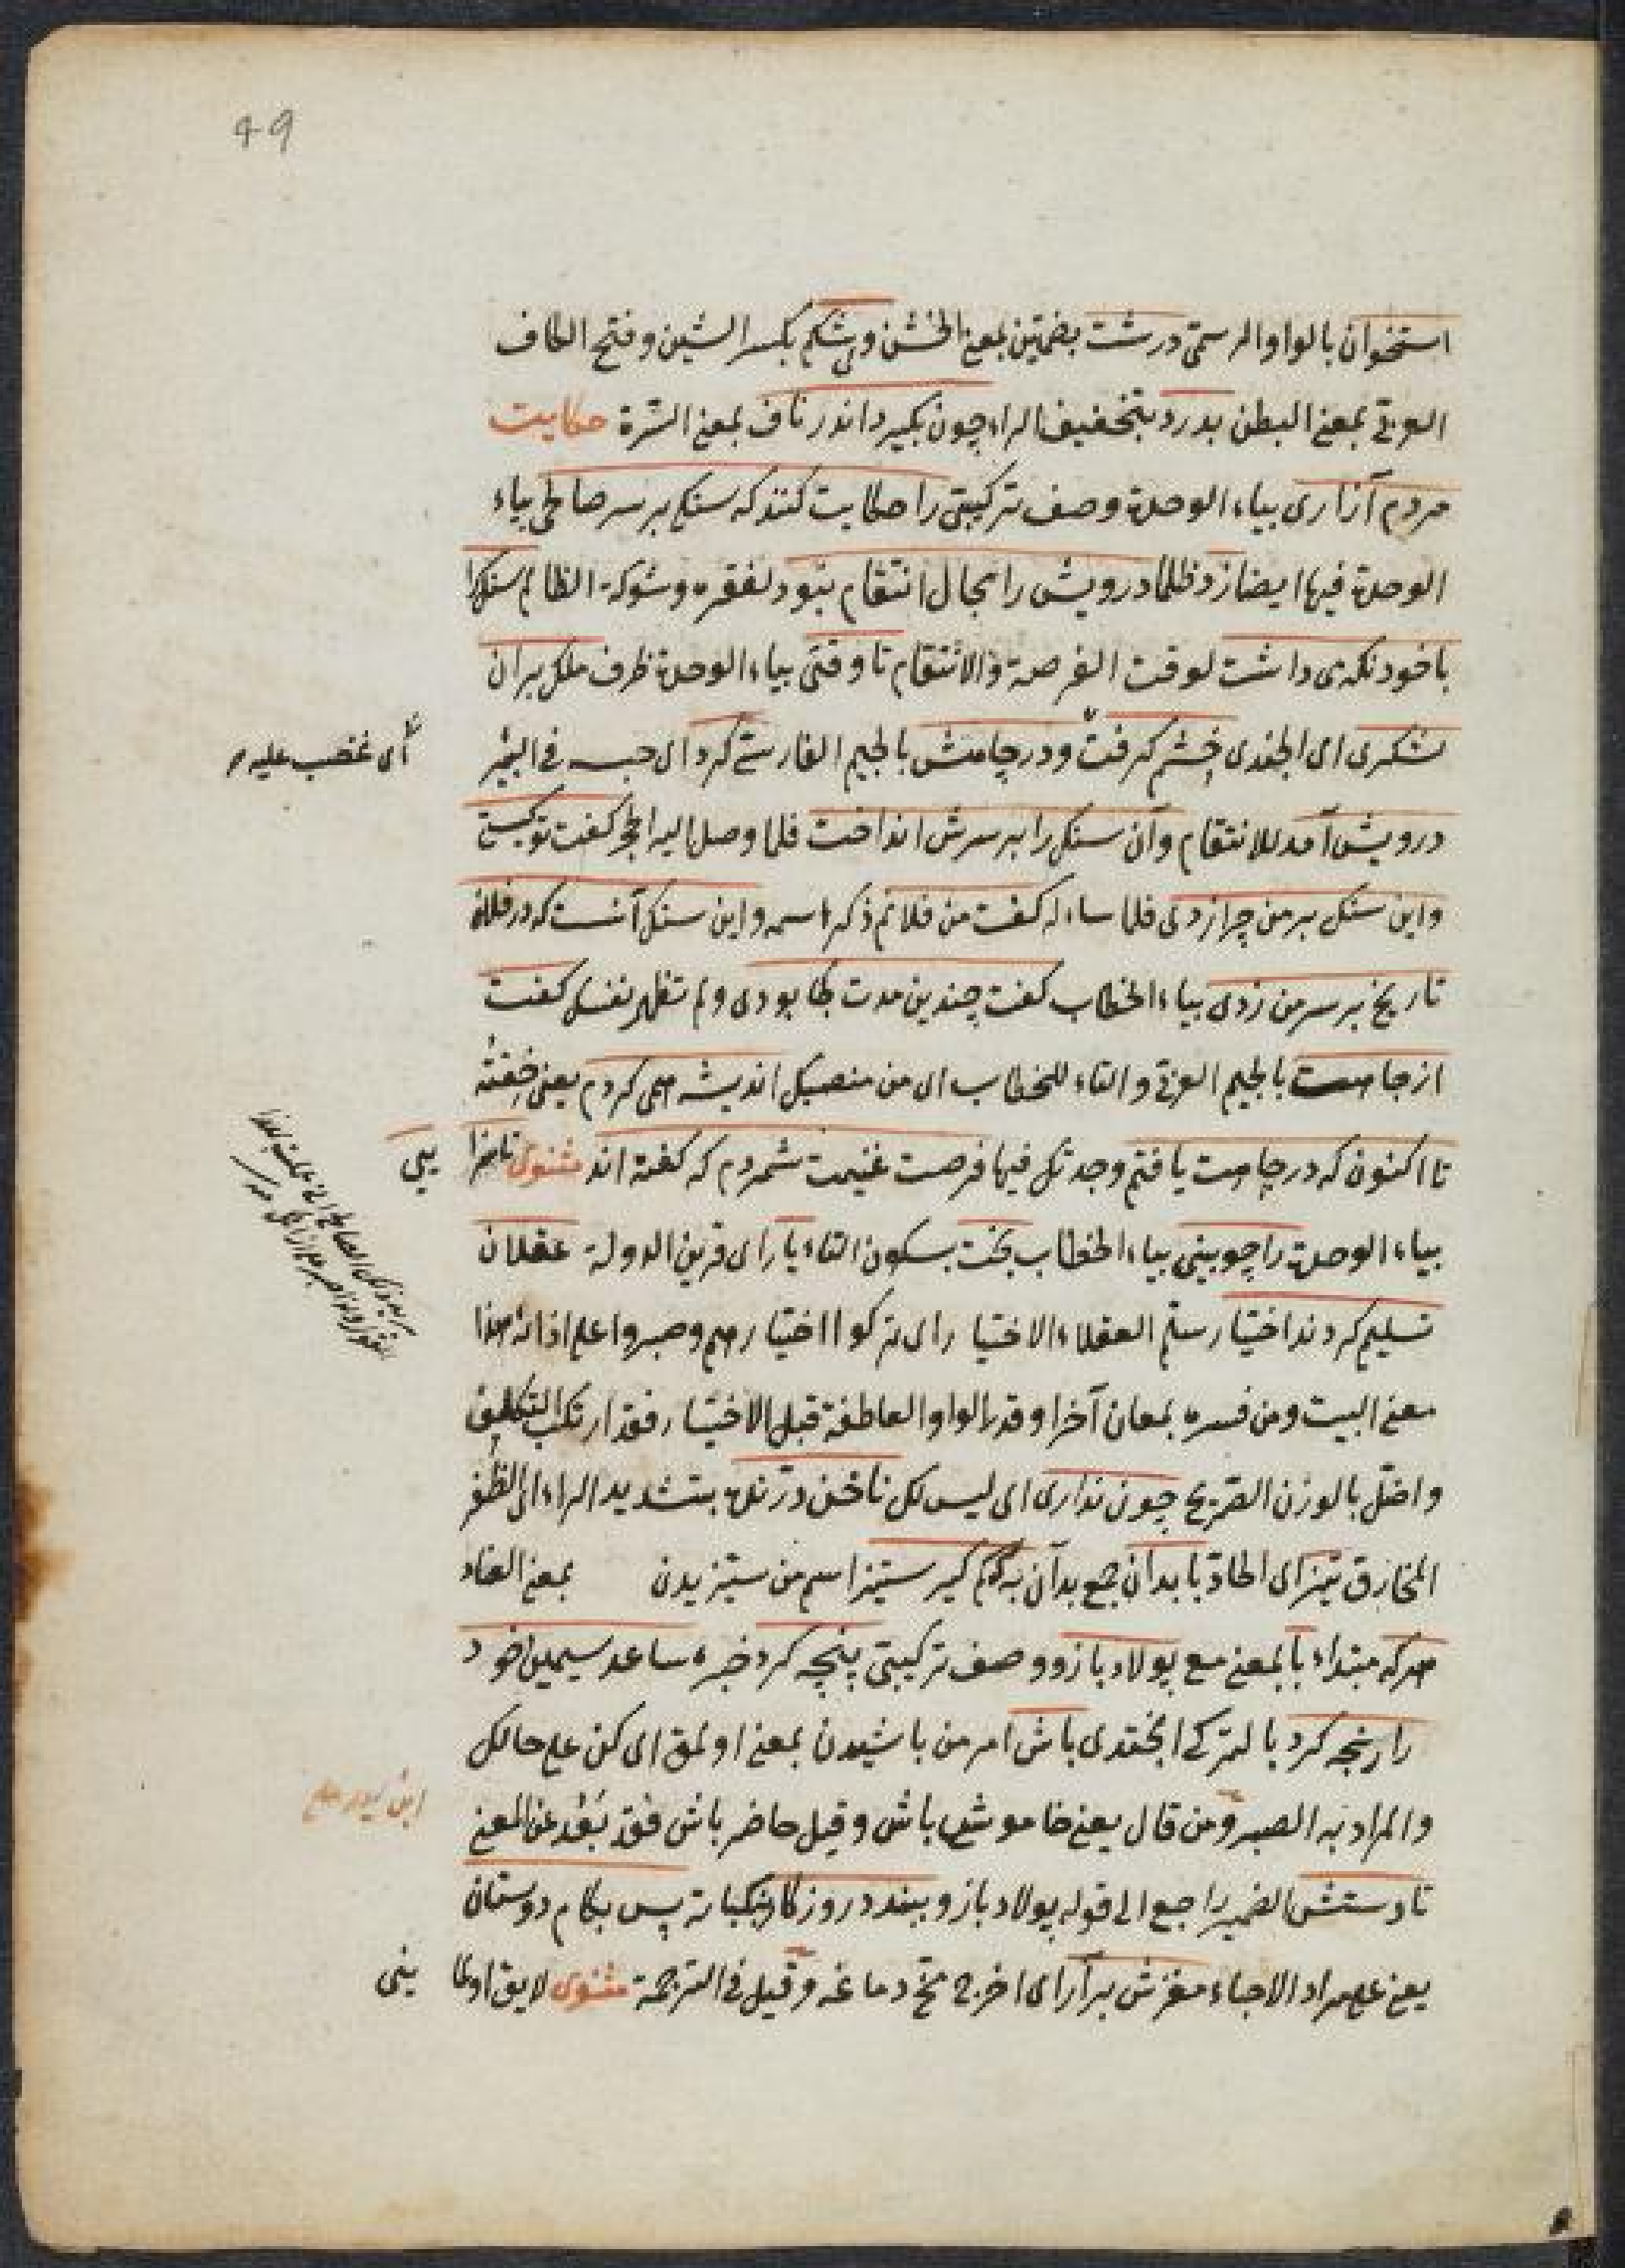 49
استخوان بالواو الرسمى درشت بضمتين بمعنى الخشن وى شكم بكسر الشين وفتح الكاف
العربى بمعنى البطن بدرد بتخفيف الراء چون بكيرد اندر ناف بمعنى السرة حكايت
مردم آزارى بياء الوحدة وصف تركيبى را حكايت كنند كه سنكى بر سر صالحى بياء
الوحدة فيها ايضا زد ظلما درويش را مجال انتقام نبود لفقره وشوكة الظالم سنكرا
با خود نكه مى داشت لوقت الفرصة والانتقام تا وقتى بياء الوحدة ظرف ملك بران
لشكرى اى الجندى خشم كرفت ودر چاهش بالجيم الفارسى كرد اى حبسه فى البئر
اى غضب عليه
درويش آمد للانتقام وآن سنك را بر سرش انداخت فلما وصل اليه الحجر كفت تو كيستى
واين سنك بر من چرا زدى فلما سأله كفت من فلانم ذكر اسمه واين سنك آنست كه در فلان
تاريخ بر سر من زدى بياء الخطاب كفت چندين مدت كجا بودى ولم تظهر نفسك كفت
از جاهت بالجيم العربى والتاء للخطاب اى من منصبك انديشه همى كردم يعنى خفته
تا اكنون كه در چاهت يافتم وجدتك فيها فرصت غنيمت شمردم كه كفته اند مثنوى ناسزا يى
بياء الوحدة را چو بينى بياء الخطاب بخت بسكون التاء يار اى قرين الدولة عقلان
تسليم كردند اختيار سلم العقلاء الاختيار اى تركوا اختيارهم وصبروا اعلم اذا ان هذا
معنى البيت ومن فسره بمعان آخر او قدر الواو العاطفة قبل الاختيار فقد ارتكب التكلف
واخل بالوزن الصريح چون ندارى اى ليس لك ناخن درنده بتشديد الراء اى الظفر
الخارق تيز اى الحاد با بدان جمع بد آن به كه كم كير ستيز اسم من ستيزيدن بمعنى العناد
هركه مبتداء با بمعنى مع پولاد بازو وصف تركيبى پنجه كرد خبره ساعد سيمين خود
را رنجه كرد بالتركى انجتدى باش امر من باشيدن بمعنى اولمق اى كن على حالك
والمراد به الصبر ومن قال يعنى خاموش باش وقيل حاضر باش فقد بعد عن المعنى
تا دستش الضمير راجع الى قوله پولاد بازو ببندد روزكار پس بكام دوستان
يعنى على مراد الاحباء مغزش برآر اى اخرج مخ دماغه وقيل فى الترجمة مثنوى لايق اولما ينى